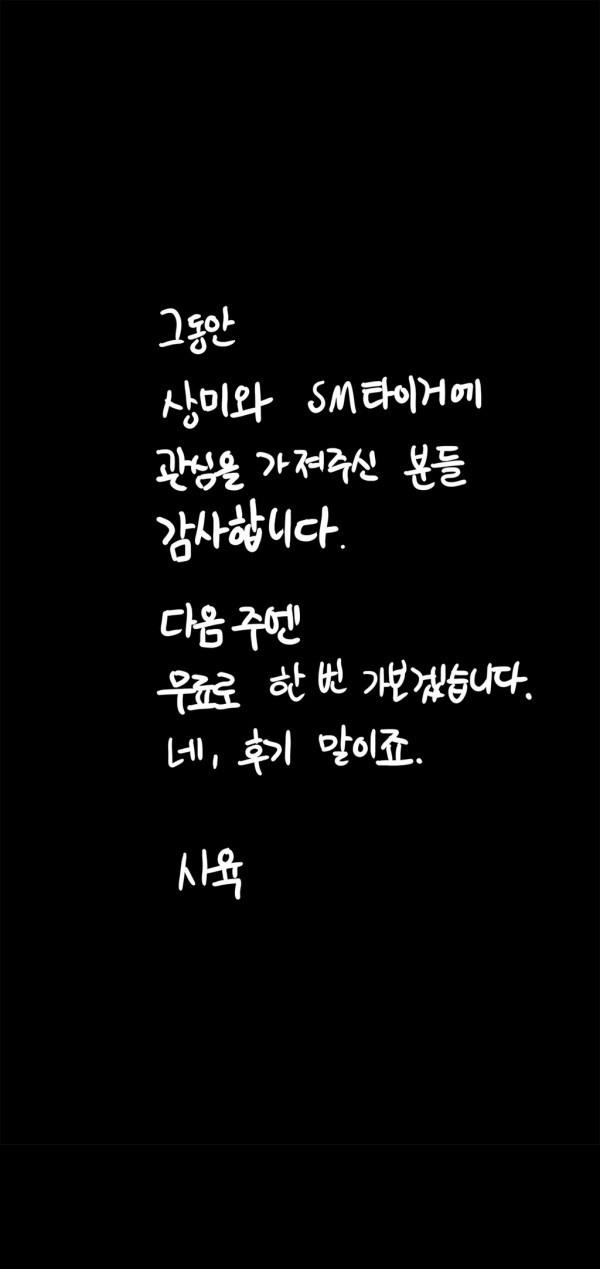 그동안
상미와 SM타이거에
관심을 가져주신 분들
감사합니다.
다음 주엔
무료로 한 번 가보겠습니다.
네, 후기 말이죠.
사육